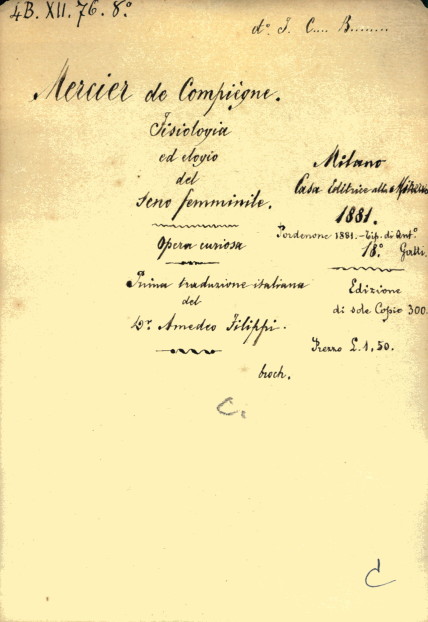 4B. XII. 76. 8.°
d.° J. C.... B........
Mercier de Compiègne.
Fisiologia
ed elogio
del
Seno femminile.
Opera curiosa
Prima traduzione italiana
del
Dr. Amedeo Filippi.
Milano
Casa Editrice alla
1881.
Pordenone 1881. - Tip. di Ant.°
18.° Gatti.
Edizione
di sole Copie 300.
Prezzo L. 1,50.
broch.
C.
C